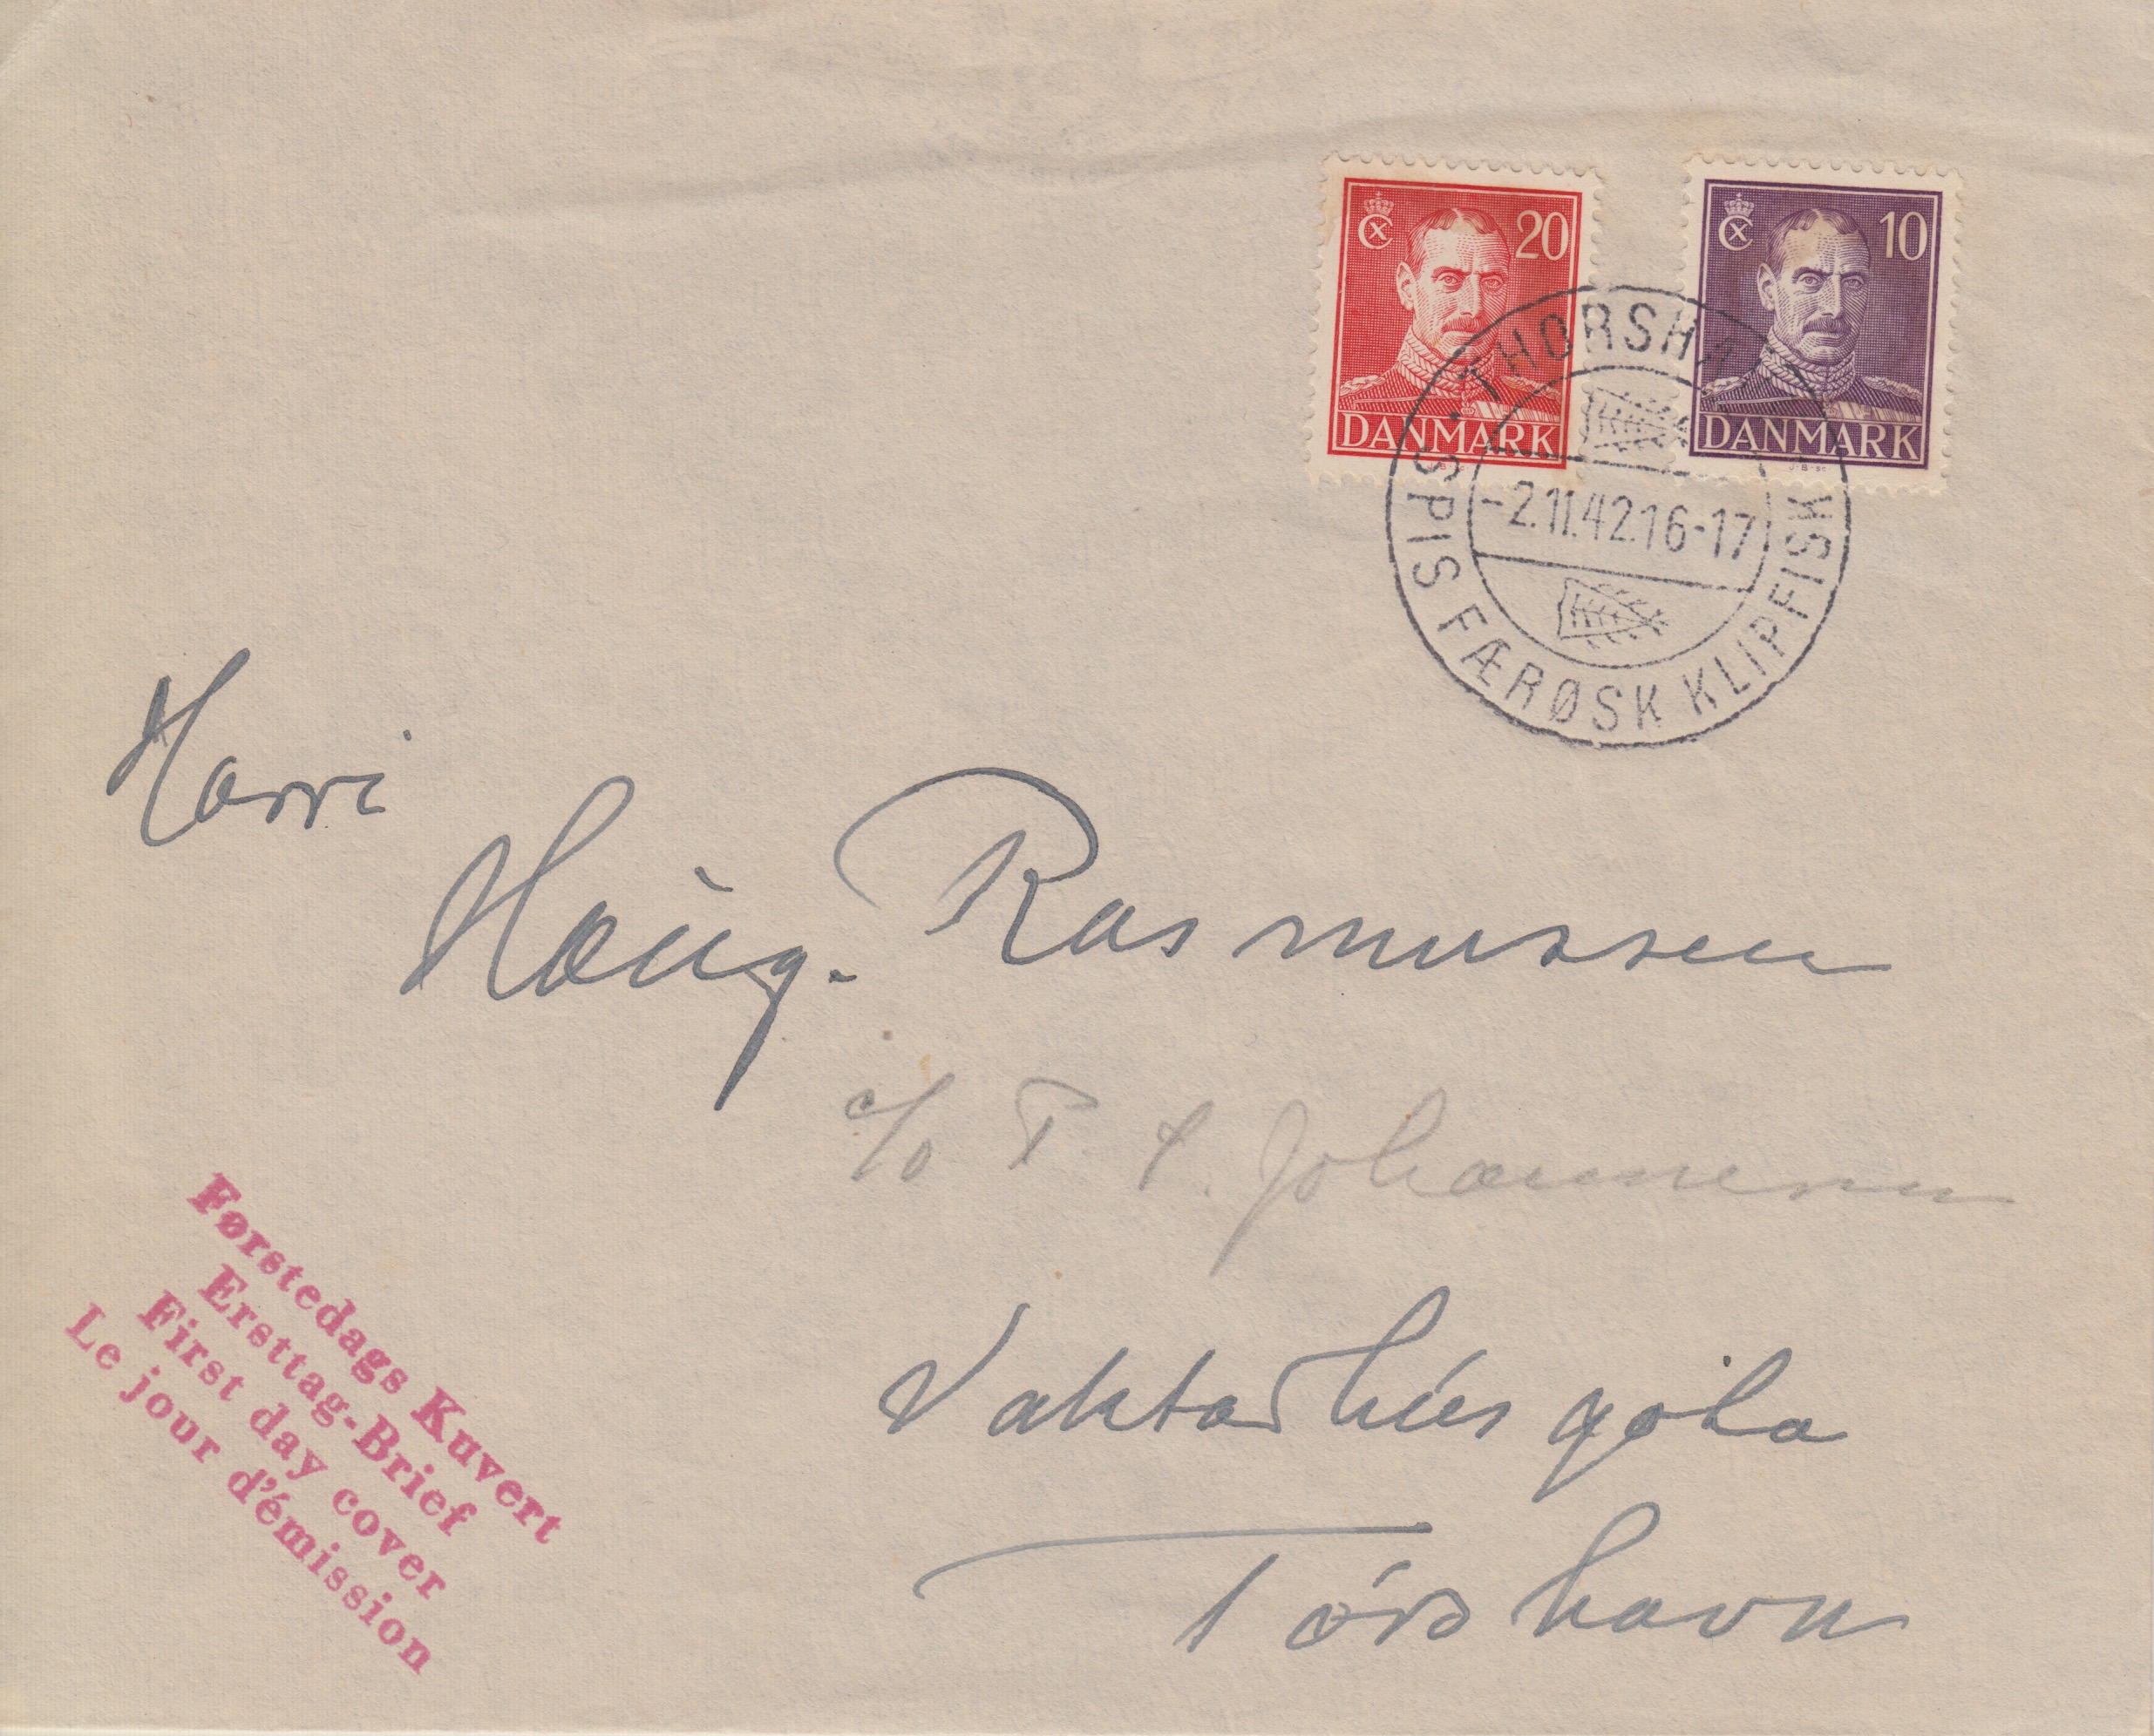 20
DANMARK
10
DANMARK
THORSHA
-2.11.42.16-17
SPIS FÆRØSK KLIPFISK
Harri
Rasmussen
c/o
Vaktarhúsgøta
Tórshavn
Førstedags Kuvert
Ersttag-Brief
First day cover
Le jour d'émission